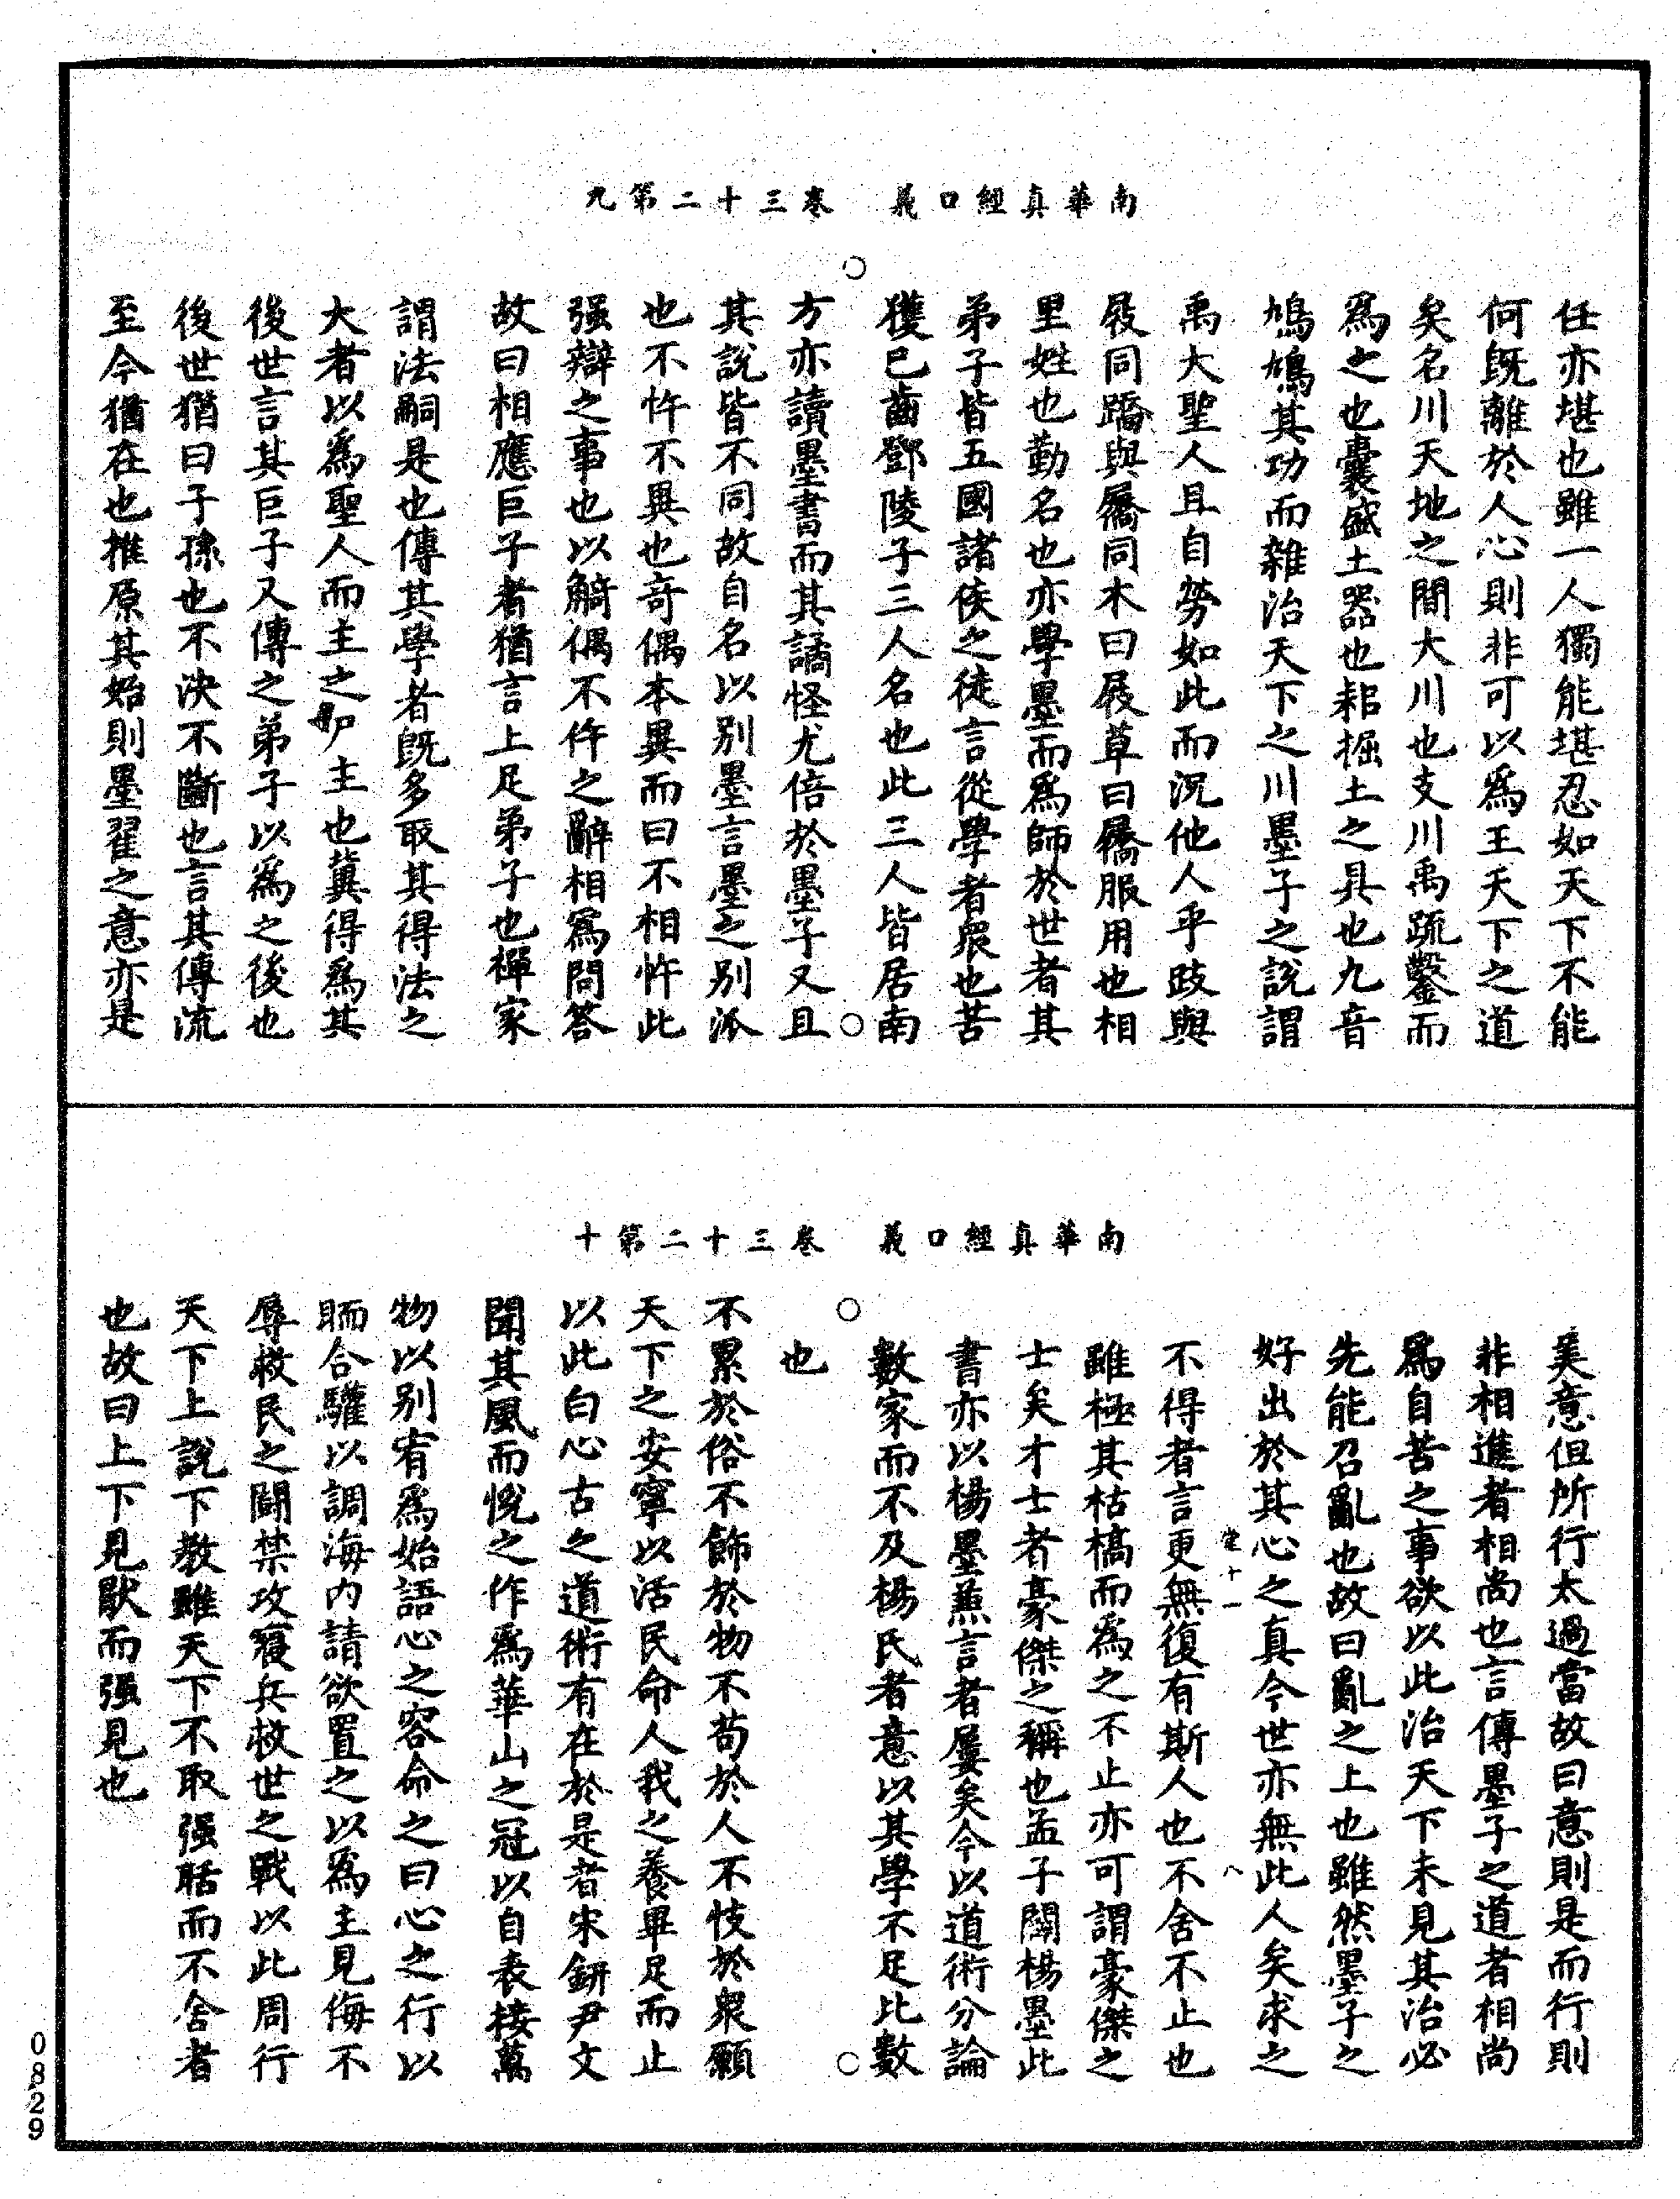 南華真經口義　卷三十二第九
任亦堪也雖一人獨能堪忍如天下不能
何既離於人心則非可以爲王天下之道
矣名川天地之間大川也支川禹疏鑿而
爲之也囊盛土器也耜掘土之具也九音
鳩鳩其功而雜治天下之川墨子之說謂
禹大聖人且自勞如此而況他人乎跂與
屐同蹻與屩同木曰屐草曰屩服用也相
里姓也勤名也亦學墨而爲師於世者其
弟子皆五國諸侯之徒言從學者衆也苦
獲已齒鄧陵子三人名也此三人皆居南
方亦讀墨書而其譎怪尤倍於墨子又且
其說皆不同故自名以別墨言墨之別派
也不忤不異也奇偶本異而曰不相忤此
强辯之事也以觭偶不仵之辭相爲問答
故曰相應巨子者猶言上足弟子也禪家
謂法嗣是也傳其學者既多取其得法之
大者以爲聖人而主之尸主也冀得爲其
後世言其巨子又傳之弟子以爲之後也
後世猶曰子孫也不決不斷也言其傳流
至今猶在也推原其始則墨翟之意亦是
南華真經口義　卷三十二第十
美意但所行太過當故曰意則是而行則
非相進者相尚也言傳墨子之道者相尚
爲自苦之事欲以此治天下未見其治必
先能召亂也故曰亂之上也雖然墨子之
好出於其心之真今世亦無此人矣求之
十一　八
不得者言更無復有斯人也不舍不止也
雖極其枯槁而爲之不止亦可謂豪傑之
士矣才士者豪傑之稱也孟子闢楊墨此
書亦以楊墨兼言者屢矣今以道術分論
數家而不及楊氏者意以其學不足比數
也
不累於俗不飾於物不苟於人不忮於衆願
天下之安寧以活民命人我之養畢足而止
以此白心古之道術有在於是者宋鈃尹文
聞其風而悅之作爲華山之冠以自表接萬
物以別宥爲始語心之容命之曰心之行以
聏合驩以調海內請欲置之以爲主見侮不
辱救民之鬬禁攻寢兵救世之戰以此周行
天下上說下教雖天下不取强聒而不舍者
也故曰上下見厭而强見也
0829